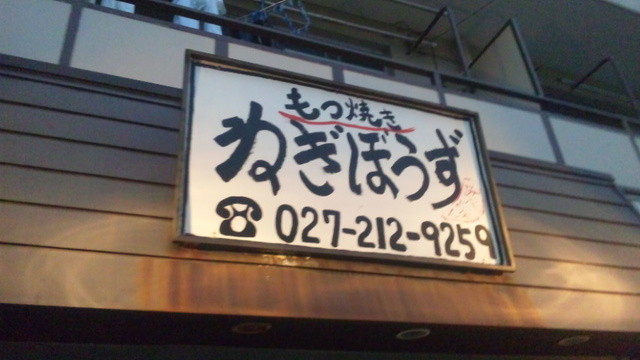 もつ焼き
ねぎぼうず
☎027-212-9259